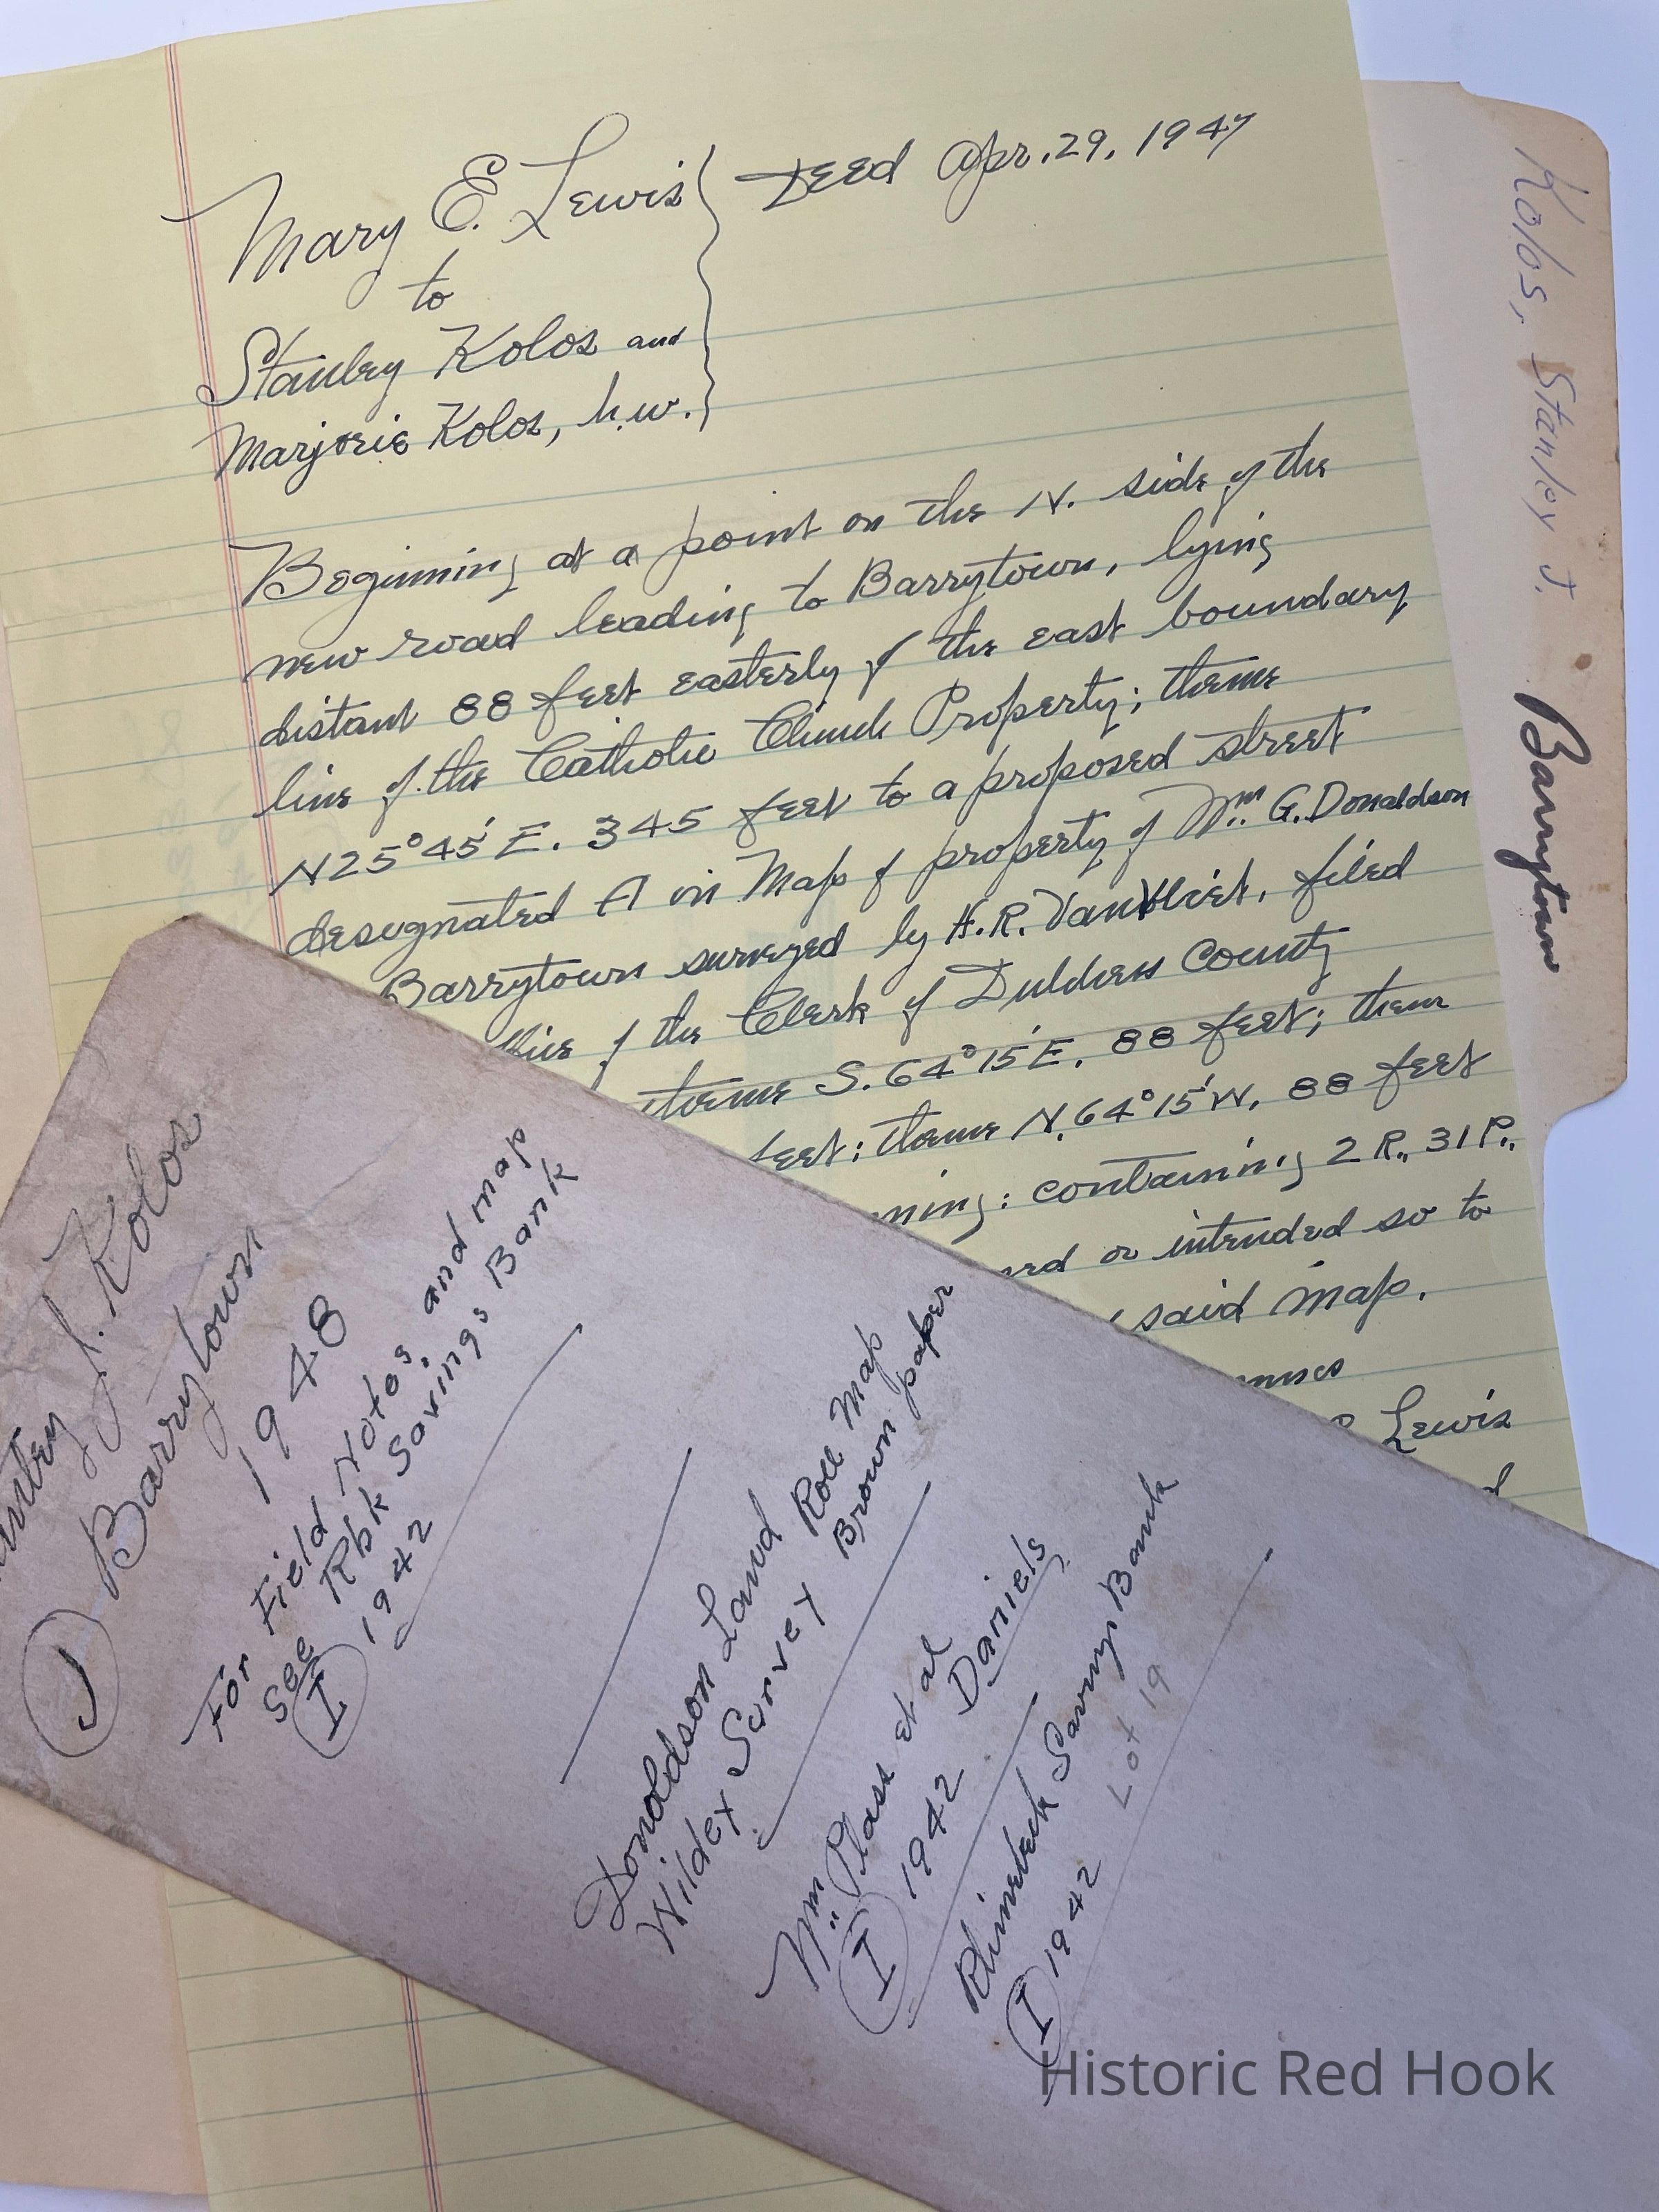 Mary E. Lewis
to
Stanley Kolos and
Marjorie Kolos, h.w.
Deed Apr. 29, 1947
Beginning at a point on the N. side of the
new road leading to Barrytown, lying
distant 88 feet easterly of the east boundary
line of the Catholic Church Property; thence
N25°45'E. 345 feet to a proposed street
designated A on Map of property of Wm. G. Donaldson
Barrytown surveyed by H.R. VanVliet, filed
of the Clerk of Dutchess County
thence S. 64°15'E. 88 feet; thence
feet; thence N.64°15'W. 88 feet
containing 2 R., 31 P.,
or intended so to
said map.
Lewis
Kolos, Stanley J. Barrytown
J. Kolos
J Barrytown
1948
For Field Notes and map
See Rbk Savings Bank
I 1942
Donaldson Land Roll Map
Wildey Survey Brown paper
Wm. Plass et al
I 1942 Daniels
Rhinebeck Savings Bank
I 1942 Lot 19
Historic Red Hook